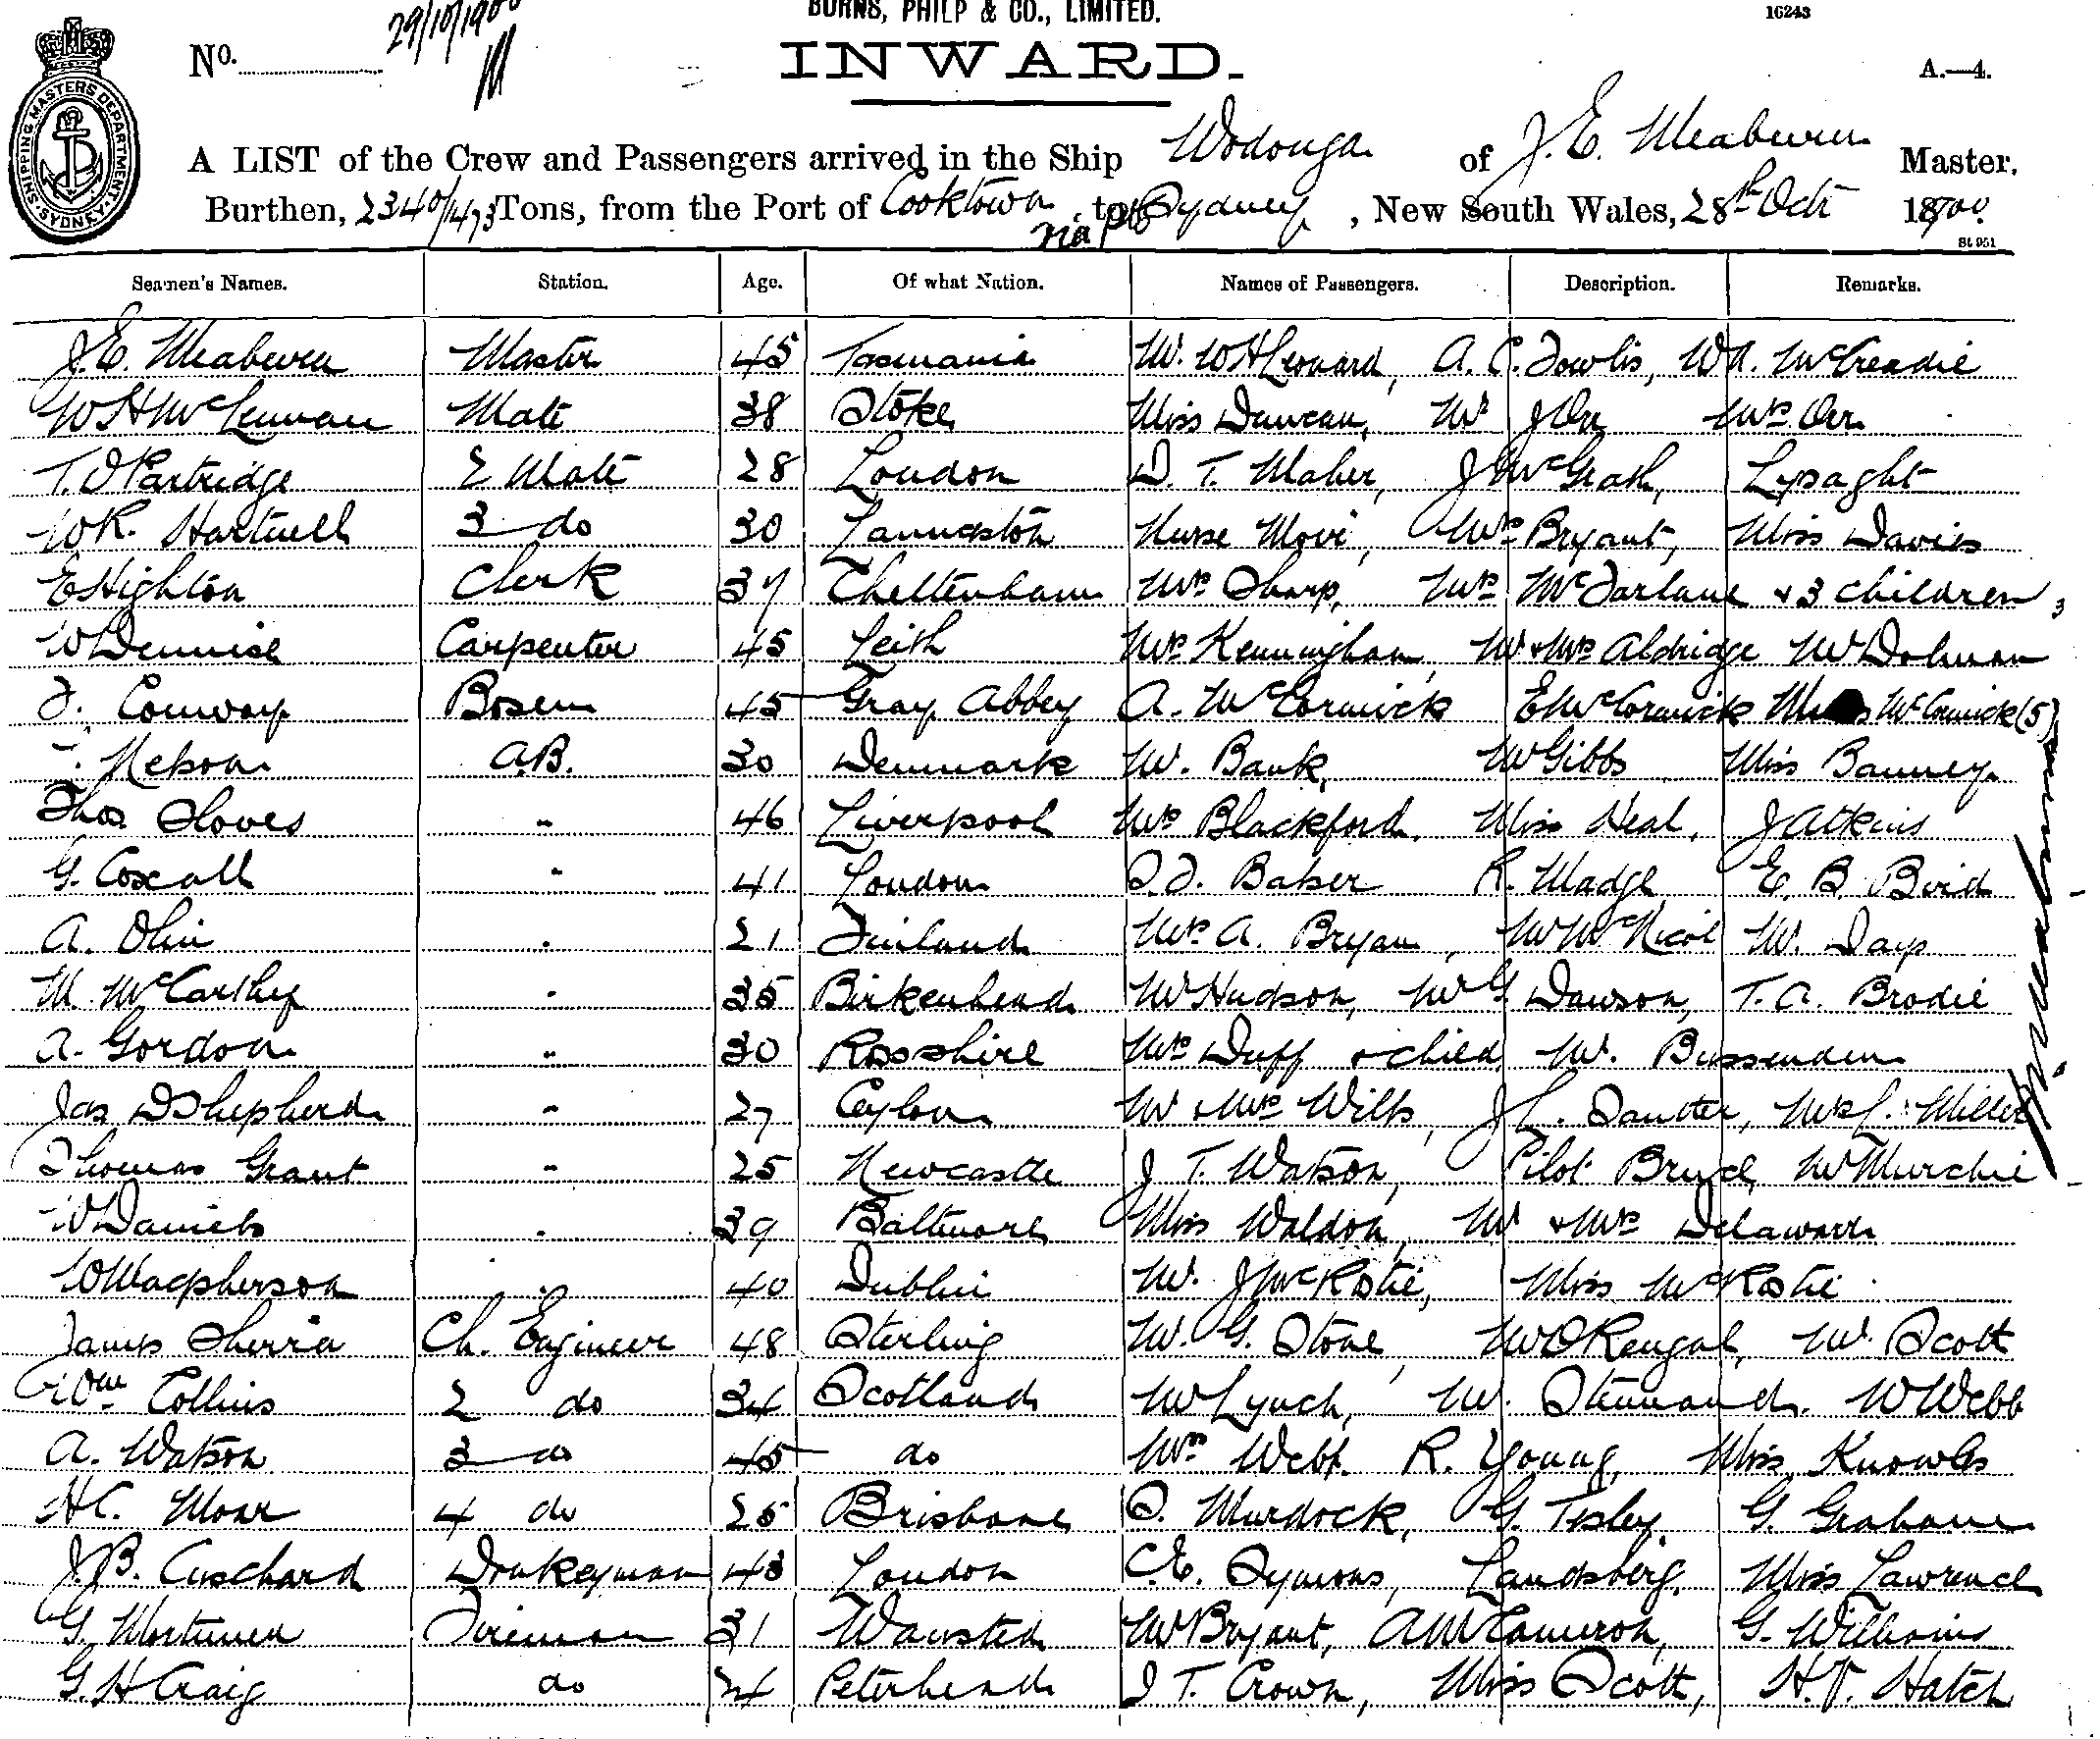 BURNS, PHILP & CO., LIMITED.
16243
No. 29/10/1900
INWARD.
A.—4.
SHIPPING MASTERS DEPARTMENT SYDNEY
A LIST of the Crew and Passengers arrived in the Ship Wodonga of J. E. Meaburn Master,
Burthen, 2340/1473 Tons, from the Port of Cooktown via pts to Sydney, New South Wales, 28th Oct 1900
St 951
Seamen's Names. Station. Age. Of what Nation. Names of Passengers. Description. Remarks.
J. E. Meaburn Master 45 Tasmania Mr. W H Leonard, A. C. Fowlis, W A. McCreadie
W H McLennan Mate 38 Stoke Miss Duncan, Mr J Orr Mrs Orr
T. O Partridge 2 Mate 28 London D. T. Maher, J McGrath, Lysaght
W R. Hartwell 3 do 30 Launceston Nurse Movi, Mrs Bryant, Miss Davies
E Highton Clerk 37 Cheltenham Mrs Sharp, Mrs McFarlane & 3 children,
W Dennise Carpenter 45 Leith Mrs Kenningham, Mr & Mrs Aldridge Mr Dolman
F. Conway Bosen 45 Gray Abbey A. McCormick E McCormick McCormick (5)
Nelson A.B. 30 Denmark Mr. Bank, Mr Gibbs Miss Banney
Thos Sloves " 46 Liverpool Mrs Blackford, Miss Neal, J Atkins
G. Coxall " 41 London Baker R. Madge E. B. Bird
A. Olin " 21 Finland Mrs A. Bryan, Mr McNicol Mr. Days
M. McCarthy " 35 Birkenhead Mr Hudson, Mr G. Dawson, T. A. Brodie
A. Gordon " 30 Rossshire Mrs Duff & child, Mr. Bussenden
Jas D Shepherd " 27 Ceylon Mr & Mrs Wills, J L. Sautter, Mrs L. Miller
Thomas Grant " 25 Newcastle J T. Watson, Pilot Bruce, Mr Murchie
W Daniels " 39 Baltimore Miss Waldon, Mr & Mrs Delaware
W Macpherson " 40 Dublin Mr. J McRostie, Miss McRostie
James Sherria Ch. Engineer 48 Sterling Mr. G. Stone, Mr Scott
Wm Collins 2 do 34 Scotland Mr Lynch, Mr. W Webb
A. Watson 3 do 45 do Mrs Webb. R. Young, Miss Knowles
H C. Moar 4 do 25 Brisbane S. Murdock, G. Tesley, G. Graham
J. B. Cuschard Donkeyman 43 London C. E. Symons, Landsberg, Miss Lawrence
G. Mortimer Fireman 31 Wansted Mr Bryant, A M Cameron, G. Williams
G. H Craig do 24 Peterhead J T. Crown, Miss Scott, H. V. Hatch